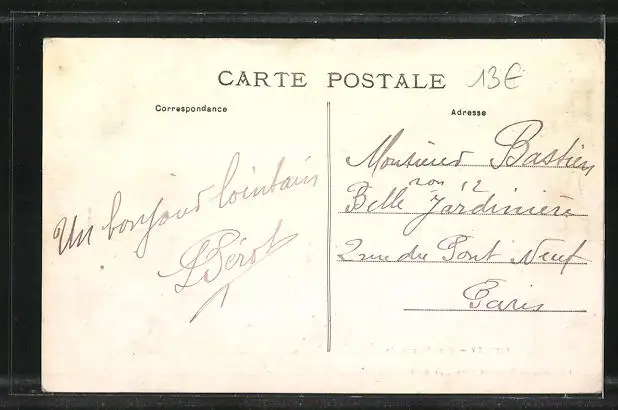 CARTE POSTALE
13€
Correspondance
Adresse
Un bonjour lointain
LBérot
Monsieur Bastien
rayon 12
Belle Jardinière
2 rue du Pont Neuf
Paris